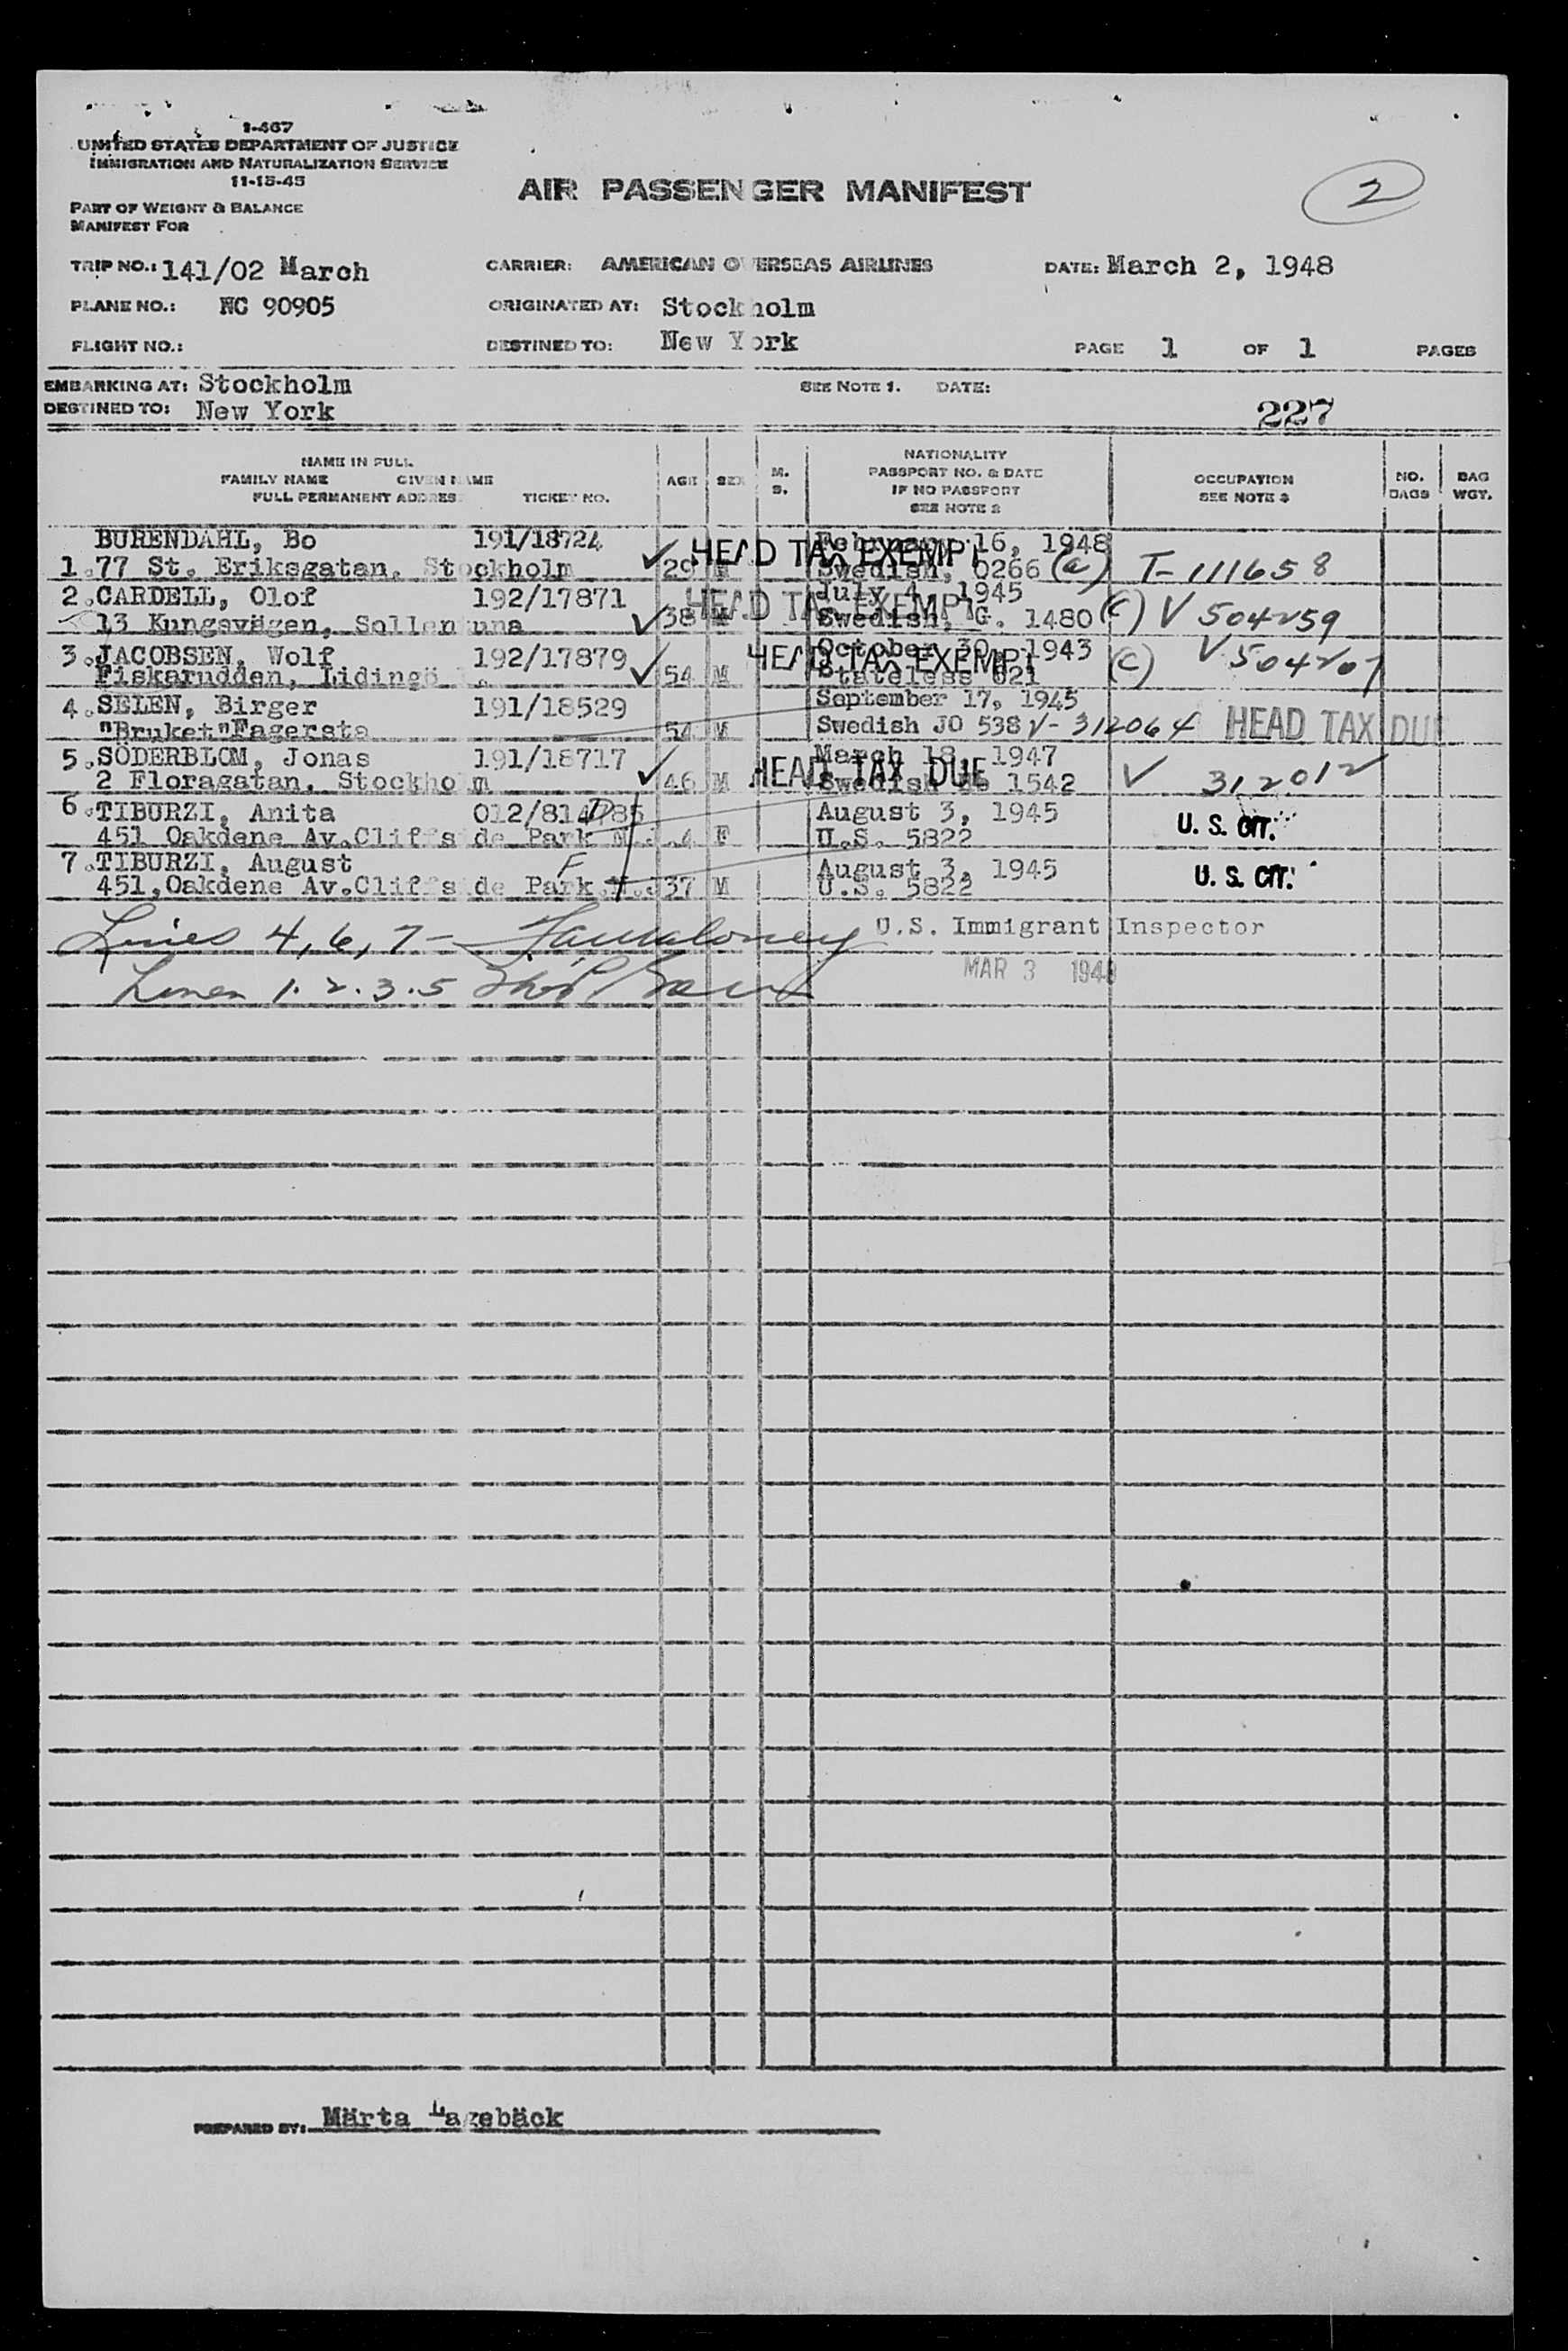 1-467
UNITED STATES DEPARTMENT OF JUSTICE
IMMIGRATION AND NATURALIZATION SERVICE
11-15-45
AIR PASSENGER MANIFEST
2
PART OF WEIGHT & BALANCE
MANIFEST FOR
TRIP NO.: 141/02 March CARRIER: AMERICAN OVERSEAS AIRLINES DATE: March 2, 1948
PLANE NO.: NC 90905 ORIGINATED AT: Stockholm
FLIGHT NO.: DESTINED TO: New York PAGE 1 OF 1 PAGES
EMBARKING AT: Stockholm SEE NOTE 1. DATE:
DESTINED TO: New York 227
NAME IN FULL
FAMILY NAME GIVEN NAME
FULL PERMANENT ADDRESS TICKET NO. AGE SEX M. S. NATIONALITY PASSPORT NO. & DATE IF NO PASSPORT SEE NOTE 2 OCCUPATION SEE NOTE 3 NO. BAGS BAG WGT.
BURENDAHL, Bo 191/18724 HEAD TAX EXEMPT February 16, 1948
1.77 St. Eriksgatan, Stockholm 29 M Swedish, 0266 (a) T-111658
2.CARDELL, Olof 192/17871 HEAD TAX EXEMPT July 4, 1945
13 Kungsvägen, Sollentuna 38 M Swedish, G. 1480 (c) V 504259
3.JACOBSEN, Wolf 192/17879 HEAD TAX EXEMPT October 30, 1943
Fiskarudden, Lidingö 54 M Stateless 621 (c) V 504207
4.SELEN, Birger 191/18529 September 17, 1945
"Bruket"Fagersta 54 M Swedish JO 538 V-312064 HEAD TAX DUE
5.SÖDERBLOM, Jonas 191/18717 HEAD TAX DUE March 18, 1947
2 Floragatan, Stockholm 46 M Swedish 1542 V 312012
6.TIBURZI, Anita 012/814785 D August 3, 1945
451 Oakdene Av.Cliffside Park N.J. 4 F U.S. 5822 U. S. CIT.
7.TIBURZI, August F August 3, 1945
451,Oakdene Av.Cliffside Park.N.J 37 M U.S. 5822 U. S. CIT.
Lines 4, 6, 7- U.S. Immigrant Inspector
MAR 3 1948
Lines 1. 2. 3. 5
PREPARED BY: Märta Lagebäck